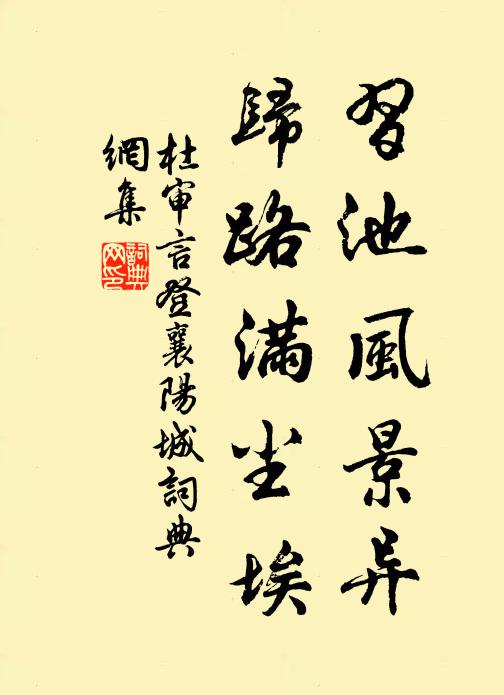 習池風景异
歸路滿尘埃
杜审言登襄陽城詞典
網集
詞典
网印